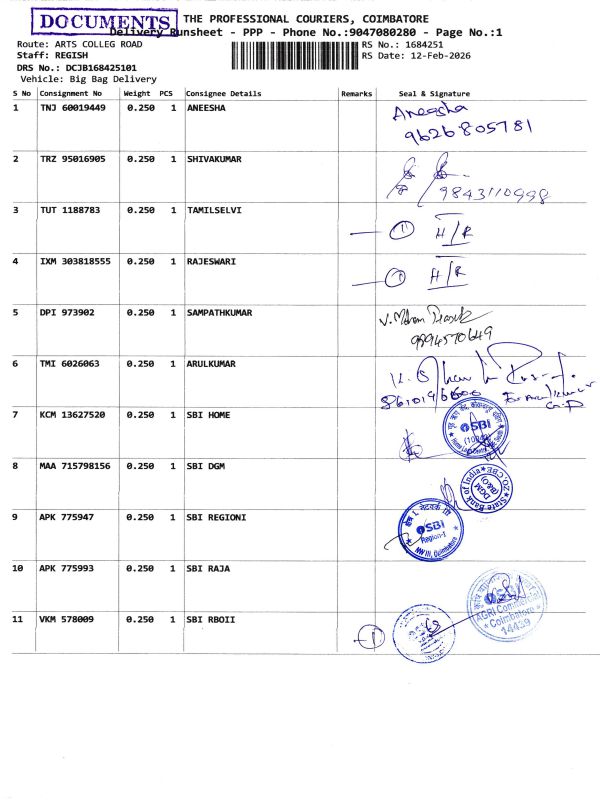 DOCUMENTS
THE PROFESSIONAL COURIERS, COIMBATORE
Delivery Runsheet - PPP - Phone No.:9047080280 - Page No.:1
Route: ARTS COLLEG ROAD
RS No.: 1684251
Staff: REGISH
RS Date: 12-Feb-2026
DRS No.: DCJB168425101
Vehicle: Big Bag Delivery
S No Consignment No Weight PCS Consignee Details Remarks Seal & Signature
1 TNJ 60019449 0.250 1 ANEESHA Aneesha
9626805781
2 TRZ 95016905 0.250 1 SHIVAKUMAR
9843110998
3 TUT 1188783 0.250 1 TAMILSELVI 1 H/R
4 IXM 303818555 0.250 1 RAJESWARI 1 H/R
5 DPI 973902 0.250 1 SAMPATHKUMAR
9894570649
6 TMI 6026063 0.250 1 ARULKUMAR
7 KCM 13627520 0.250 1 SBI HOME SBI
8 MAA 715798156 0.250 1 SBI DGM State Bank of India DGM (B&O) ZO, CBE
9 APK 775947 0.250 1 SBI REGIONI SBI Region-I NW III, Coimbatore
10 APK 775993 0.250 1 SBI RAJA SBI AGRI Commercial Coimbatore 14439
11 VKM 578009 0.250 1 SBI RBOII 1